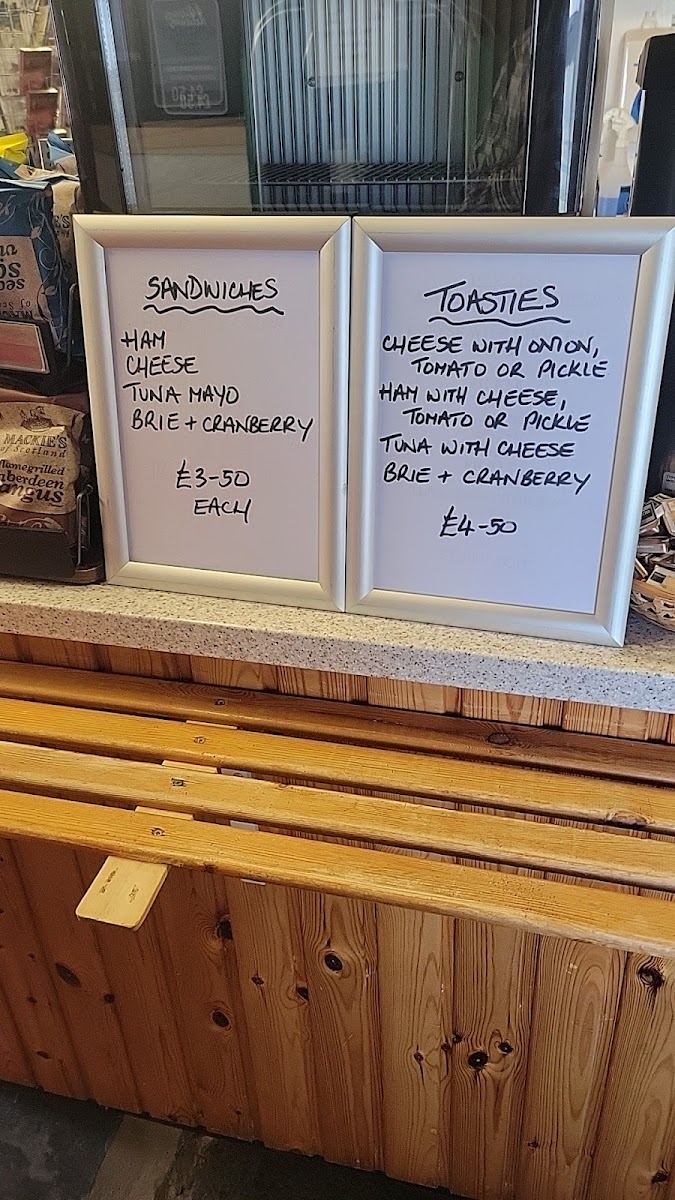 SANDWICHES
HAM
CHEESE
TUNA MAYO
BRIE + CRANBERRY
£3-50
EACH
TOASTIES
CHEESE WITH ONION,
TOMATO OR PICKLE
HAM WITH CHEESE,
TOMATO OR PICKLE
TUNA WITH CHEESE
BRIE + CRANBERRY
£4-50
MACKIE'S
of Scotland
Flamegrilled
Aberdeen
Angus